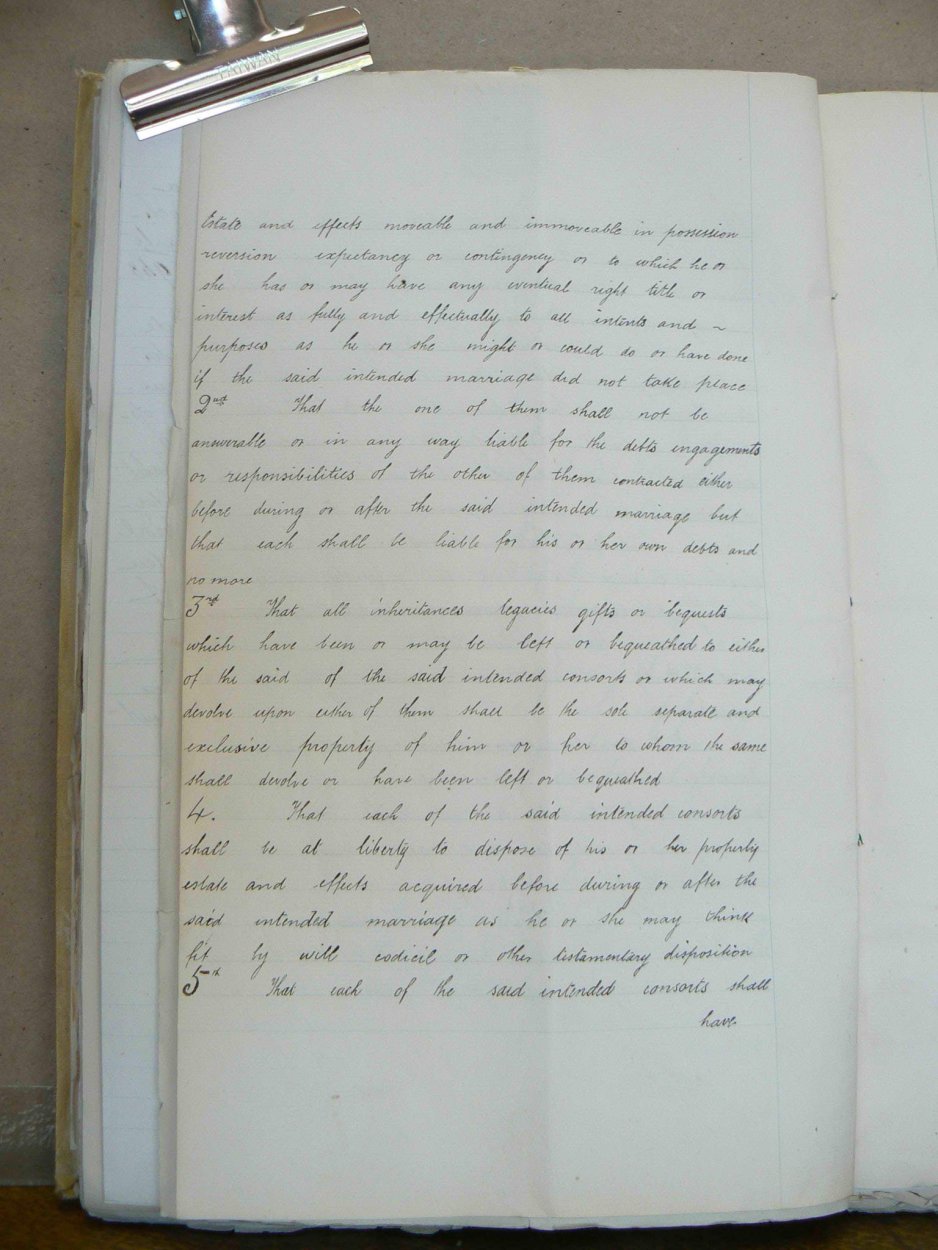 TAIWAN
Estate and effects moveable and immoveable in possession
reversion expectancy or contingency or to which he or
she has or may have any eventual right title or
interest as fully and effectually to all intents and ~
purposes as he or she might or could do or have done
if the said intended marriage did not take place
2nd That the one of them shall not be
answerable or in any way liable for the debts engagements
or responsibilities of the other of them contracted either
before during or after the said intended marriage but
that each shall be liable for his or her own debts and
no more
3rd That all inheritances legacies gifts or bequests
which have been or may be left or bequeathed to either
of the said of the said intended consorts or which may
devolve upon either of them shall be the sole separate and
exclusive property of him or her to whom the same
shall devolve or have been left or bequeathed
4. That each of the said intended consorts
shall be at liberty to dispose of his or her property
estate and effects acquired before during or after the
said intended marriage as he or she may think
fit by will codicil or other testamentary disposition
5th That each of the said intended consorts shall
have